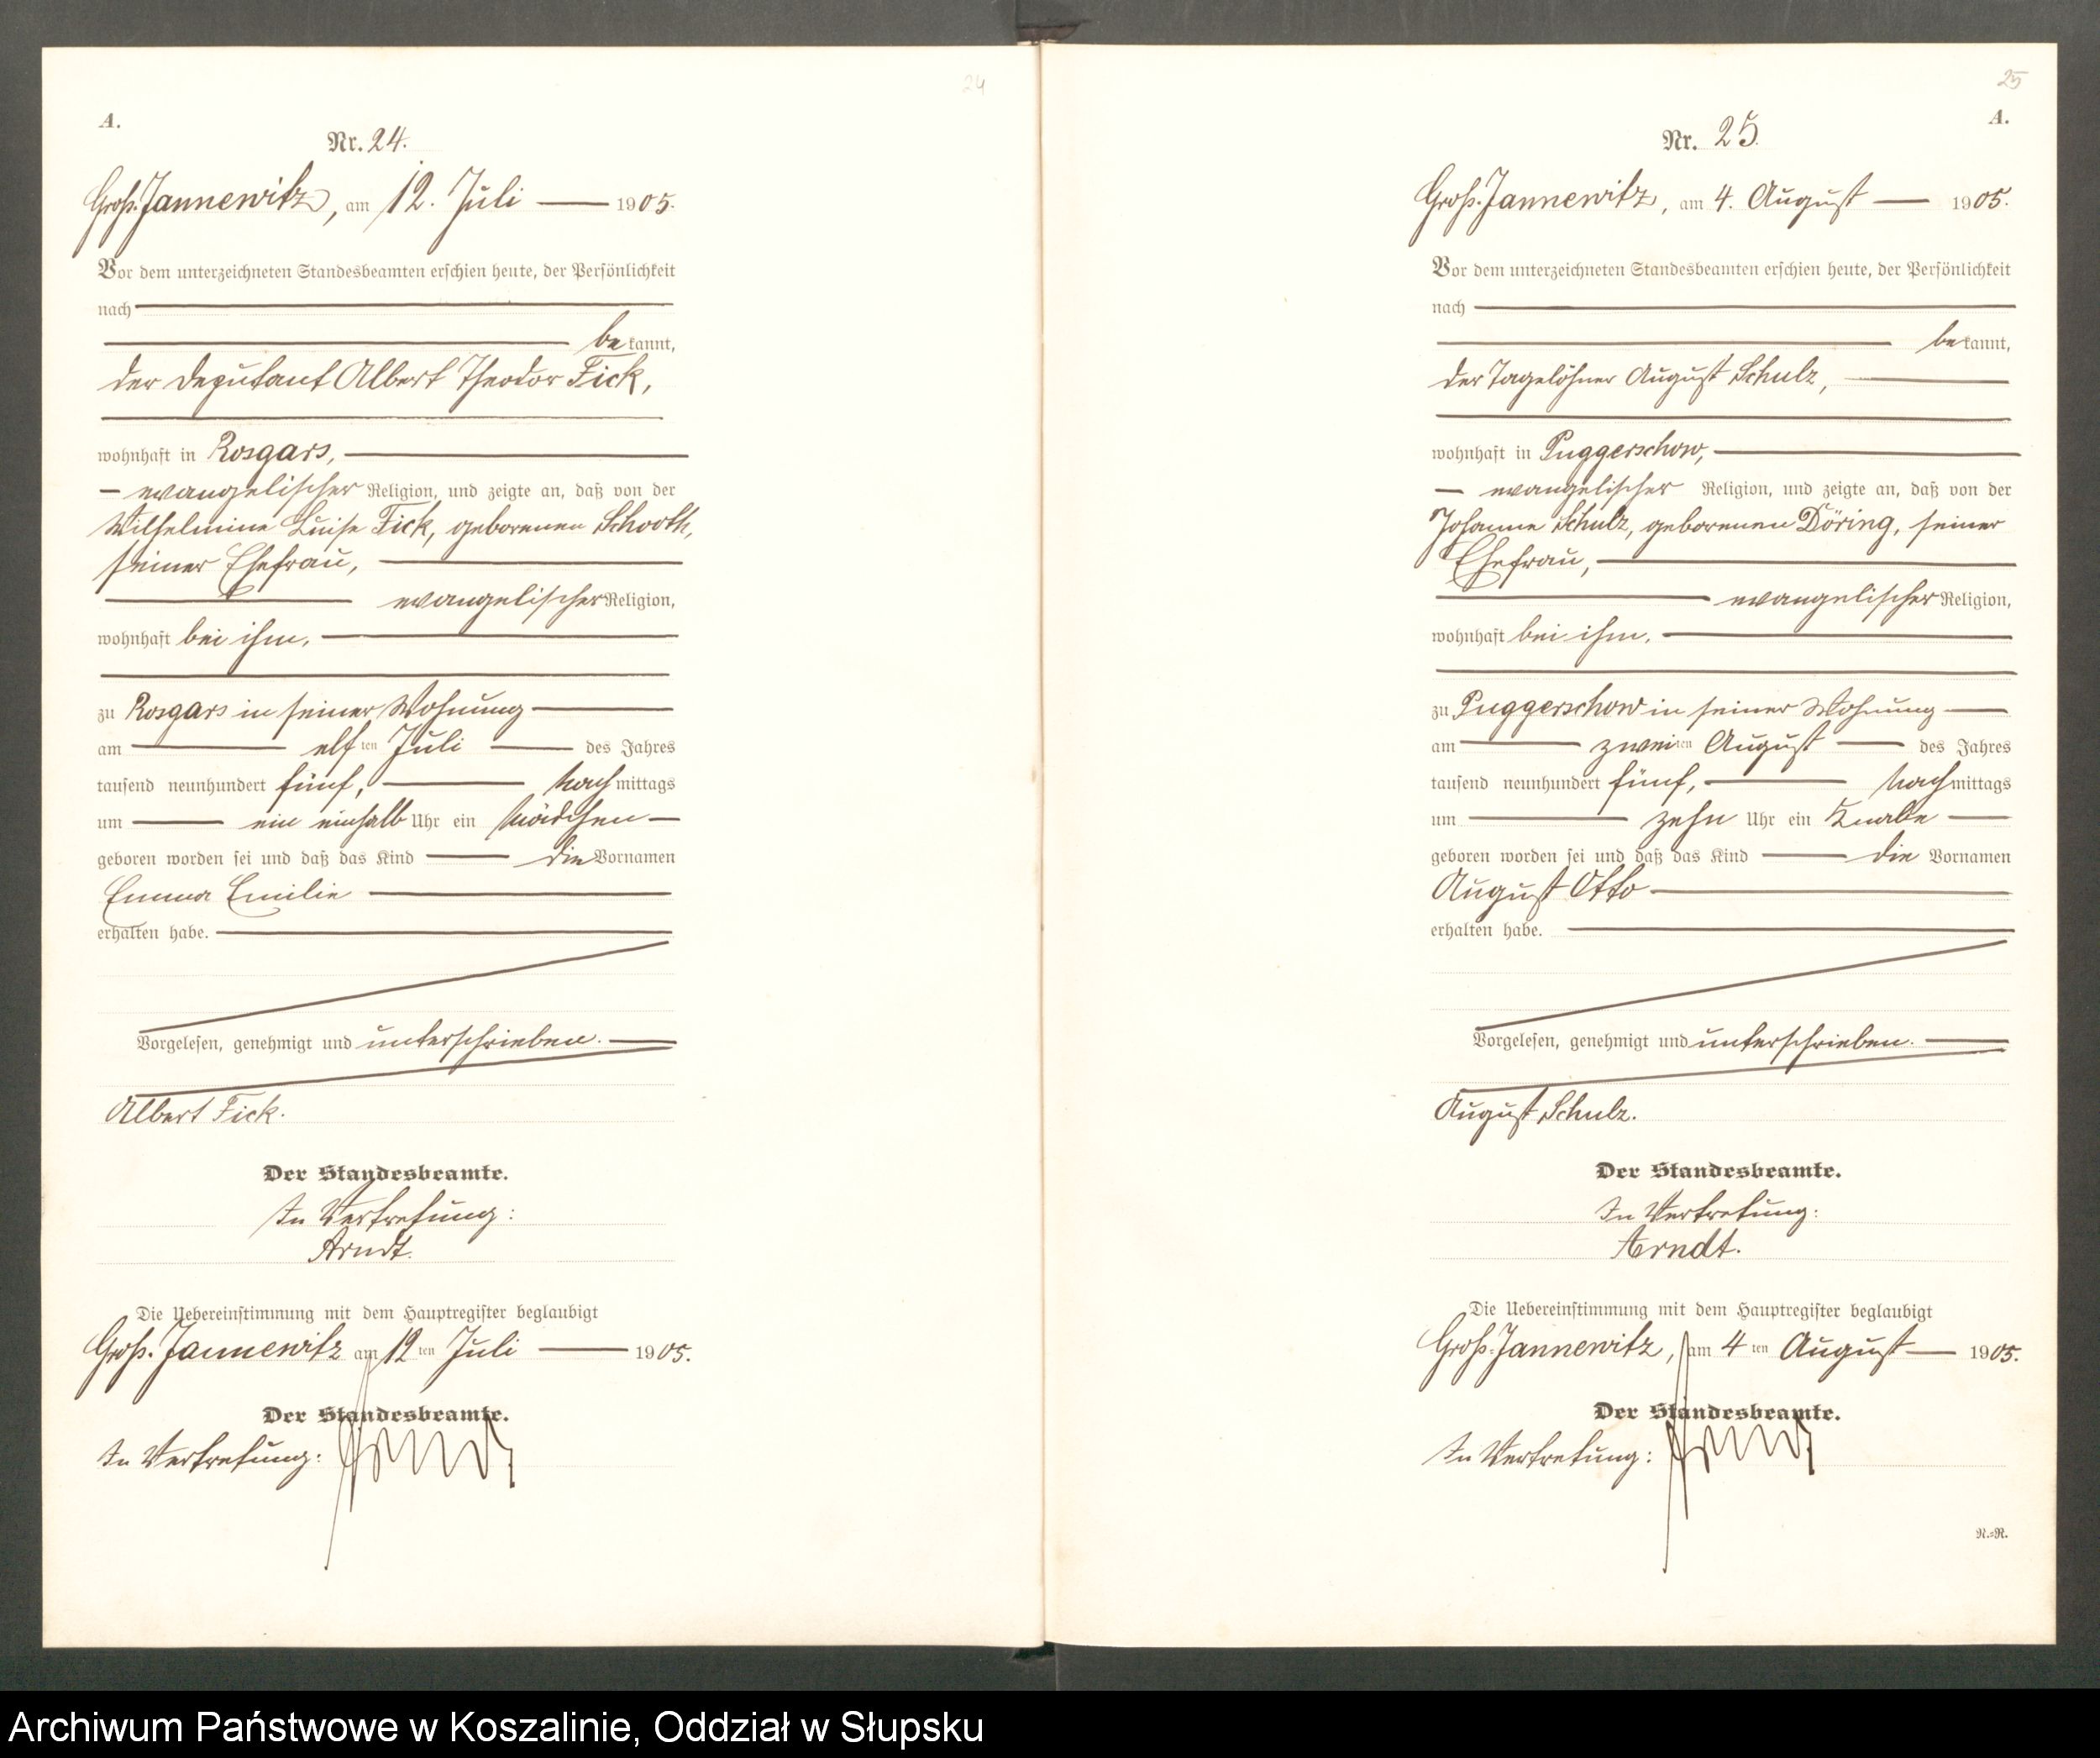 24
A.
Nr. 24.
Groß-Jannewitz, am 12. Juli 1905.
Vor dem unterzeichneten Standesbeamten erschien heute, der Persönlichkeit
nach
bekannt,
der Deputant Albert Theodor Fick,
wohnhaft in Rosgars,
evangelischer Religion, und zeigte an, daß von der
Wilhelmine Luise Fick, geborenen Schooth,
seiner Ehefrau,
evangelischer Religion,
wohnhaft bei ihm,
zu Rosgars in seiner Wohnung
am elften Juli des Jahres
tausend neunhundert fünf, Nachmittags
um ein einhalb Uhr ein Mädchen
geboren worden sei und daß das Kind die Vornamen
Emma Emilie
erhalten habe.
Vorgelesen, genehmigt und unterschrieben.
Albert Fick.
Der Standesbeamte.
In Vertretung:
Arndt.
Die Uebereinstimmung mit dem Hauptregister beglaubigt
Groß-Jannewitz am 12ten Juli 1905.
Der Standesbeamte.
In Vertretung: Arndt
25
A.
Nr. 25.
Groß-Jannewitz, am 4. August 1905.
Vor dem unterzeichneten Standesbeamten erschien heute, der Persönlichkeit
nach
bekannt,
der Tagelöhner August Schulz,
wohnhaft in Puggerschow,
evangelischer Religion, und zeigte an, daß von der
Johanne Schulz, geborenen Döring, seiner
Ehefrau,
evangelischer Religion,
wohnhaft bei ihm,
zu Puggerschow in seiner Wohnung
am zweiten August des Jahres
tausend neunhundert fünf, Nachmittags
um zehn Uhr ein Knabe
geboren worden sei und daß das Kind die Vornamen
August Otto
erhalten habe.
Vorgelesen, genehmigt und unterschrieben.
August Schulz.
Der Standesbeamte.
In Vertretung:
Arndt.
Die Uebereinstimmung mit dem Hauptregister beglaubigt
Groß-Jannewitz, am 4ten August 1905.
Der Standesbeamte.
In Vertretung: Arndt
R.=R.
Archiwum Państwowe w Koszalinie, Oddział w Słupsku